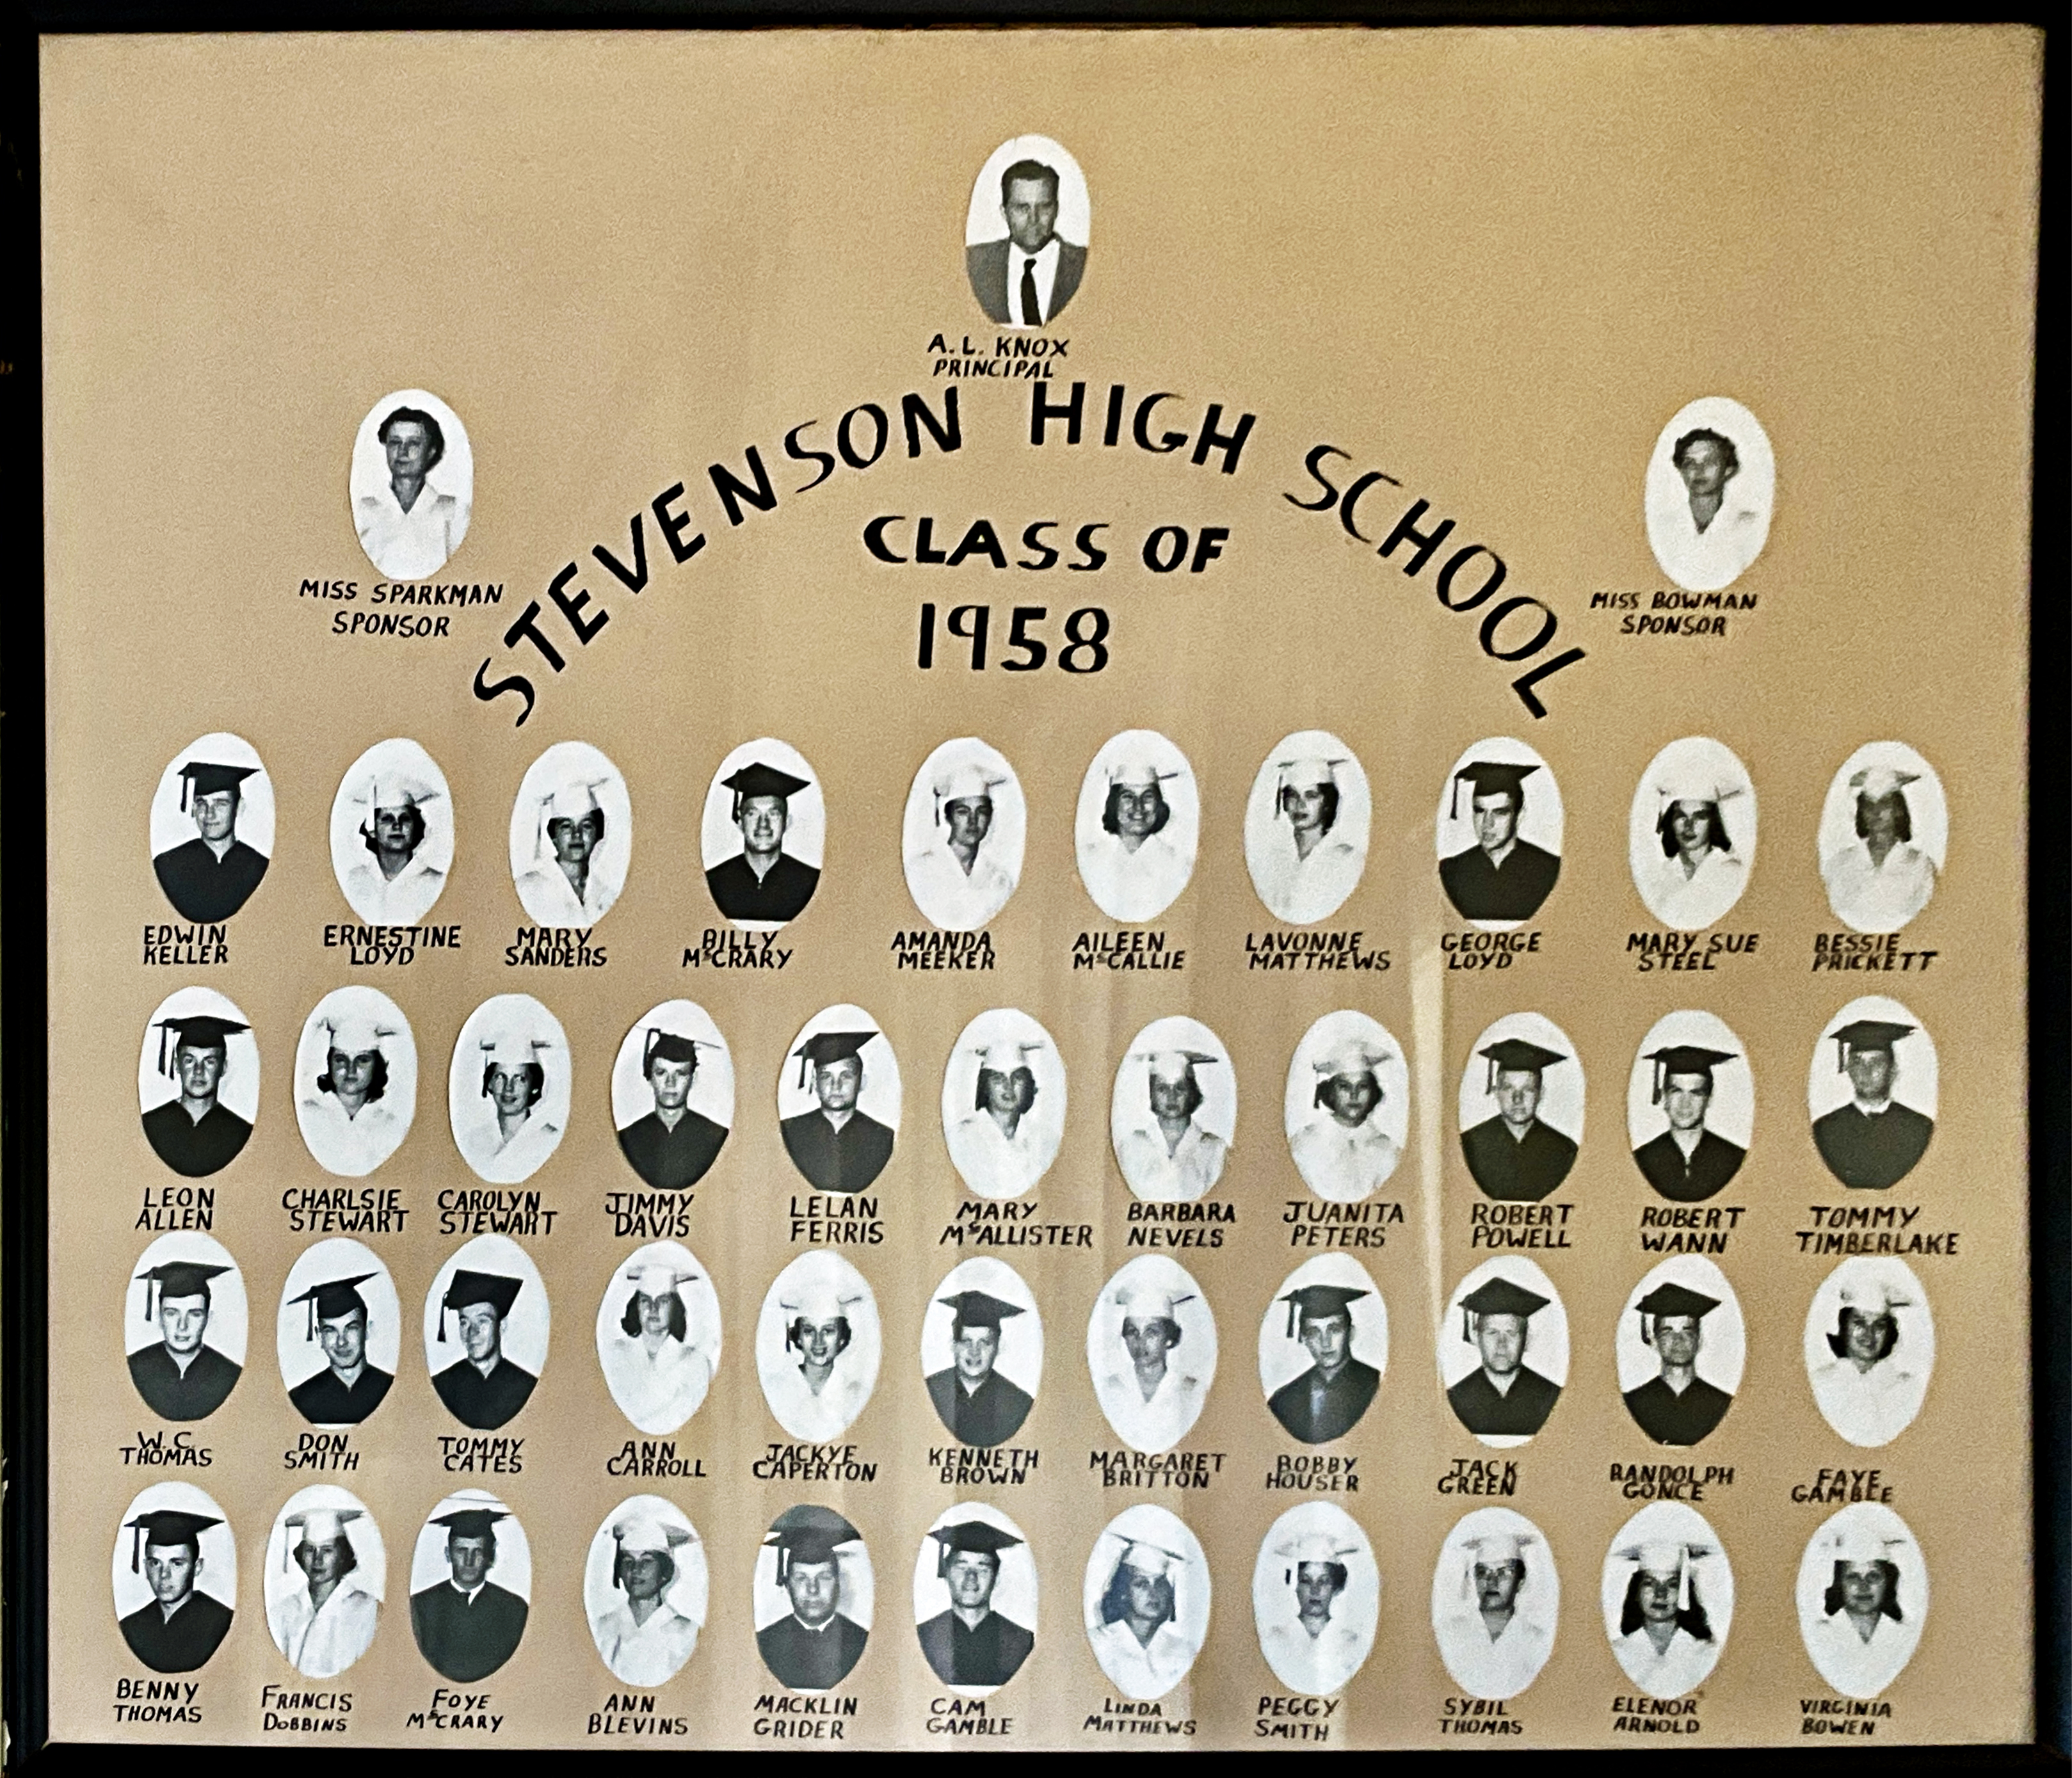 A.L. KNOX
PRINCIPAL
STEVENSON HIGH SCHOOL
CLASS OF
1958
MISS SPARKMAN
SPONSOR
MISS BOWMAN
SPONSOR
EDWIN
KELLER
ERNESTINE
LOYD
MARY
SANDERS
BILLY
McCRARY
AMANDA
MEEKER
AILEEN
McCALLIE
LAVONNE
MATTHEWS
GEORGE
LOYD
MARY SUE
STEEL
BESSIE
PRICKETT
LEON
ALLEN
CHARLSIE
STEWART
CAROLYN
STEWART
JIMMY
DAVIS
LELAN
FERRIS
MARY
McALLISTER
BARBARA
NEVELS
JUANITA
PETERS
ROBERT
POWELL
ROBERT
WANN
TOMMY
TIMBERLAKE
W.C.
THOMAS
DON
SMITH
TOMMY
CATES
ANN
CARROLL
JACKYE
CAPERTON
KENNETH
BROWN
MARGARET
BRITTON
BOBBY
HOUSER
JACK
GREEN
RANDOLPH
GONCE
FAYE
GAMBLE
BENNY
THOMAS
FRANCIS
DOBBINS
FOYE
McCRARY
ANN
BLEVINS
MACKLIN
GRIDER
CAM
GAMBLE
LINDA
MATTHEWS
PEGGY
SMITH
SYBIL
THOMAS
ELENOR
ARNOLD
VIRGINIA
BOWEN